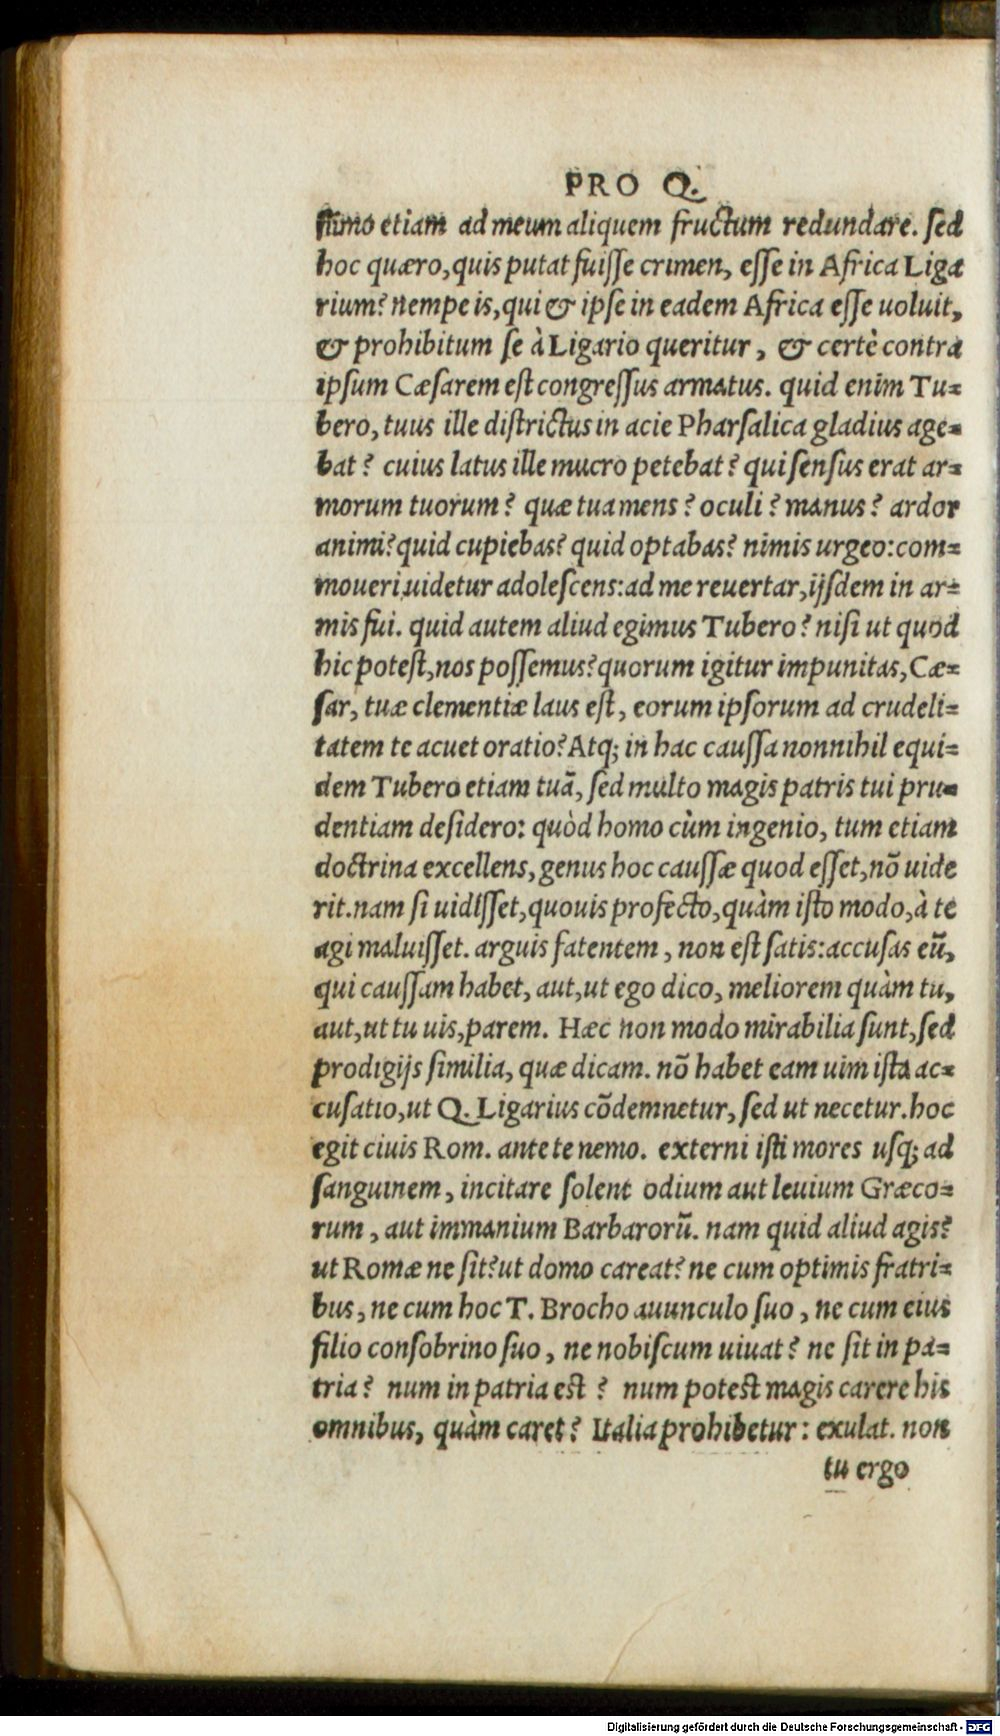 PRO Q.
ſtimo etiam ad meum aliquem fructum redundare. ſed
hoc quæro, quis putat fuiſſe crimen, eſſe in Africa Liga
rium? nempe is, qui & ipſe in eadem Africa eſſe uoluit,
& prohibitum ſe à Ligario queritur, & certè contra
ipſum Cæſarem eſt congreſſus armatus. quid enim Tu-
bero, tuus ille diſtrictus in acie Pharſalica gladius age-
bat? cuius latus ille mucro petebat? qui ſenſus erat ar-
morum tuorum? quæ tua mens? oculi? manus? ardor
animi? quid cupiebas? quid optabas? nimis urgeo: com-
moueri uidetur adoleſcens: ad me reuertar, ijſdem in ar-
mis fui. quid autem aliud egimus Tubero? niſi ut quod
hic poteſt, nos poſſemus? quorum igitur impunitas, Cæ-
ſar, tuæ clementiæ laus eſt, eorum ipſorum ad crudeli-
tatem te acuet oratio? Atq; in hac cauſſa nonnihil equi-
dem Tubero etiam tuã, ſed multo magis patris tui pru-
dentiam deſidero: quòd homo cùm ingenio, tum etiam
doctrina excellens, genus hoc cauſſæ quod eſſet, nõ uide
rit. nam ſi uidiſſet, quouis profecto, quàm iſto modo, à te
agi maluiſſet. arguis fatentem, non eſt ſatis: accuſas eũ,
qui cauſſam habet, aut, ut ego dico, meliorem quàm tu,
aut, ut tu uis, parem. Hæc non modo mirabilia ſunt, ſed
prodigijs ſimilia, quæ dicam. nõ habet eam uim iſta ac-
cuſatio, ut Q. Ligarius cõdemnetur, ſed ut necetur. hoc
egit ciuis Rom. ante te nemo. externi iſti mores uſq; ad
ſanguinem, incitare ſolent odium aut leuium Græco-
rum, aut immanium Barbarorũ. nam quid aliud agis?
ut Romæ ne ſit? ut domo careat? ne cum optimis fratri-
bus, ne cum hoc T. Brocho auunculo ſuo, ne cum eius
filio conſobrino ſuo, ne nobiſcum uiuat? ne ſit in pa-
tria? num in patria eſt? num poteſt magis carere his
omnibus, quàm caret? Italia prohibetur: exulat. non
tu ergo
Digitalisierung gefördert durch die Deutsche Forschungsgemeinschaft - DFG